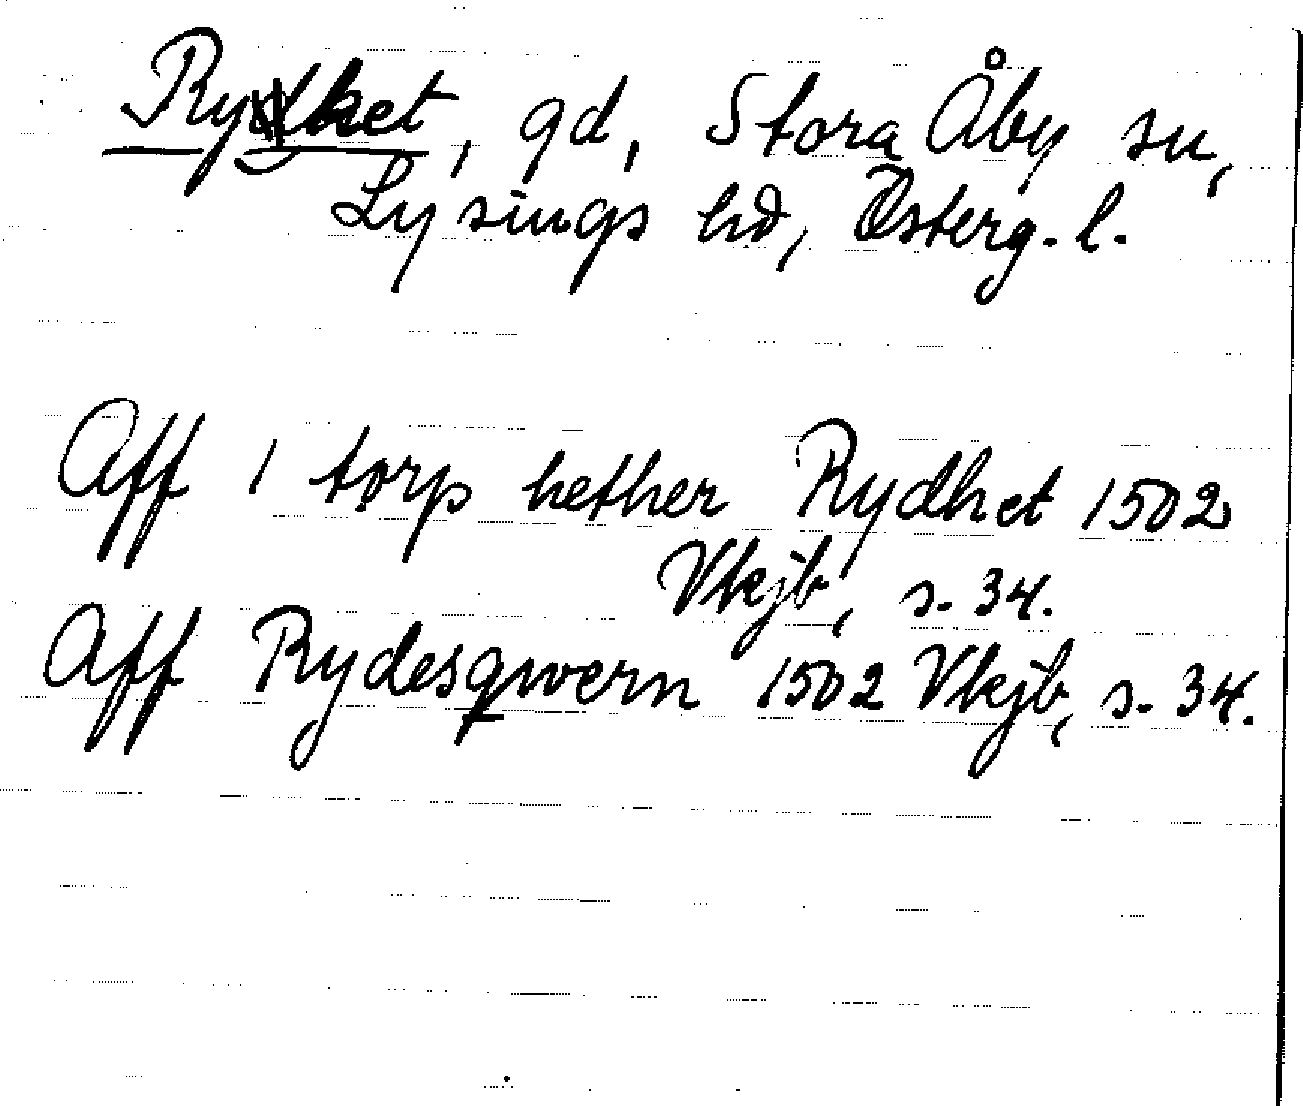 Ryket, gd, Stora Åby sn,
Lysings hd, Österg. l.
Aff 1 torp hether Rydhet 1502
Vkjb, s. 34.
Aff Rydesqwern 1502 Vkjb, s. 34.